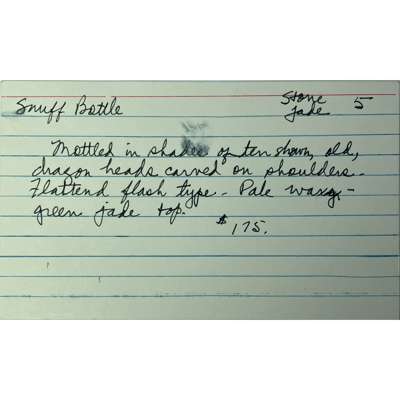 Snuff Bottle
Stone 5
Jade
Mottled in shades of ten shown, old,
dragon heads carved on shoulders -
Flattend flash type - Pale waxy -
green jade top.
$175.